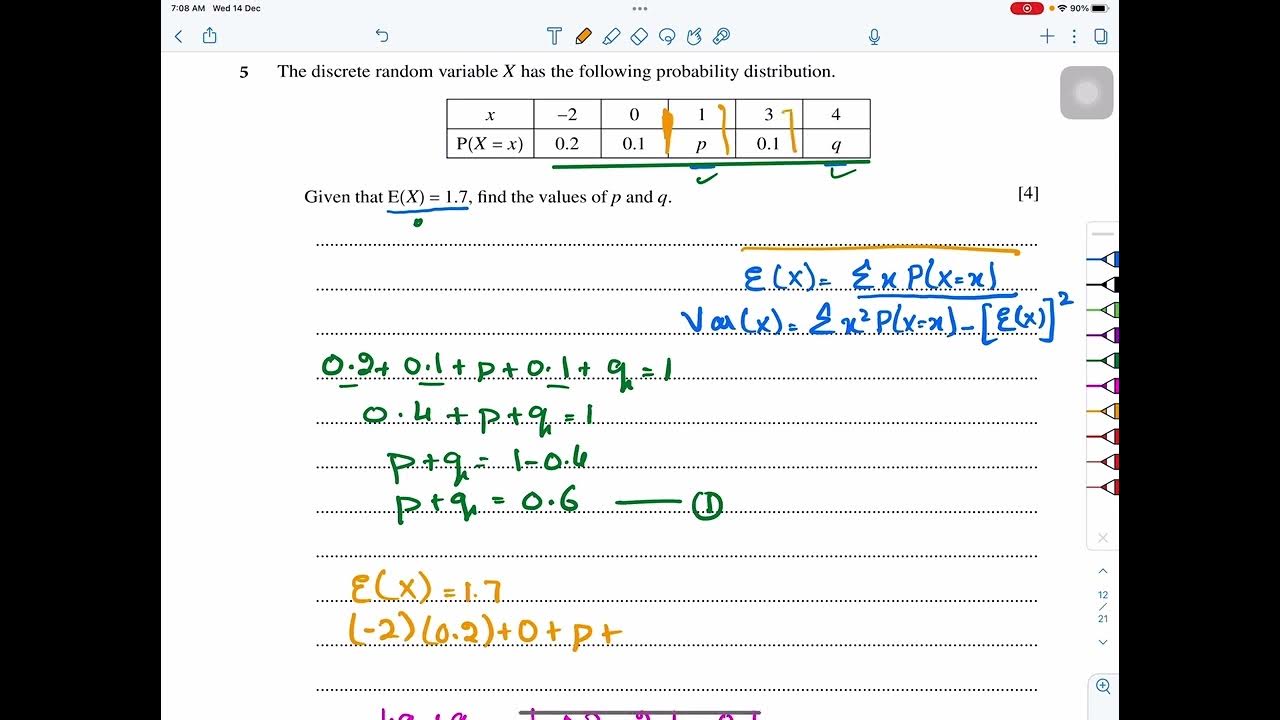 7:08 AM Wed 14 Dec
90%
5 The discrete random variable X has the following probability distribution.
x −2 0 1 3 4
P(X = x) 0.2 0.1 p 0.1 q
Given that E(X) = 1.7, find the values of p and q. [4]
E(X) = Σ x P(X=x)
Var(X) = Σ x² P(X=x) − [E(X)]²
0.2 + 0.1 + p + 0.1 + q = 1
0.4 + p + q = 1
p + q = 1 − 0.4
p + q = 0.6 —— ①
E(X) = 1.7
(-2)(0.2) + 0 + p +
12
/
21